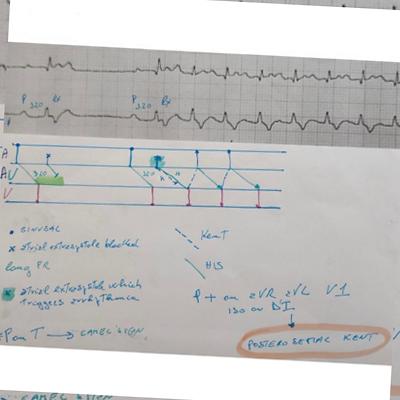 P 320 Rx P 320 Rx
A
AV 320 320
V
• SINUSAL
x atrial extrasystole blocked
long PR
x atrial extrasystole which
triggers arrhythmia
P on T → CAMEL SIGN
Kent
HIS
P + on aVR aVL V1
ISO on DI
POSTEROSEPTAL KENT
CAMEL SIGN